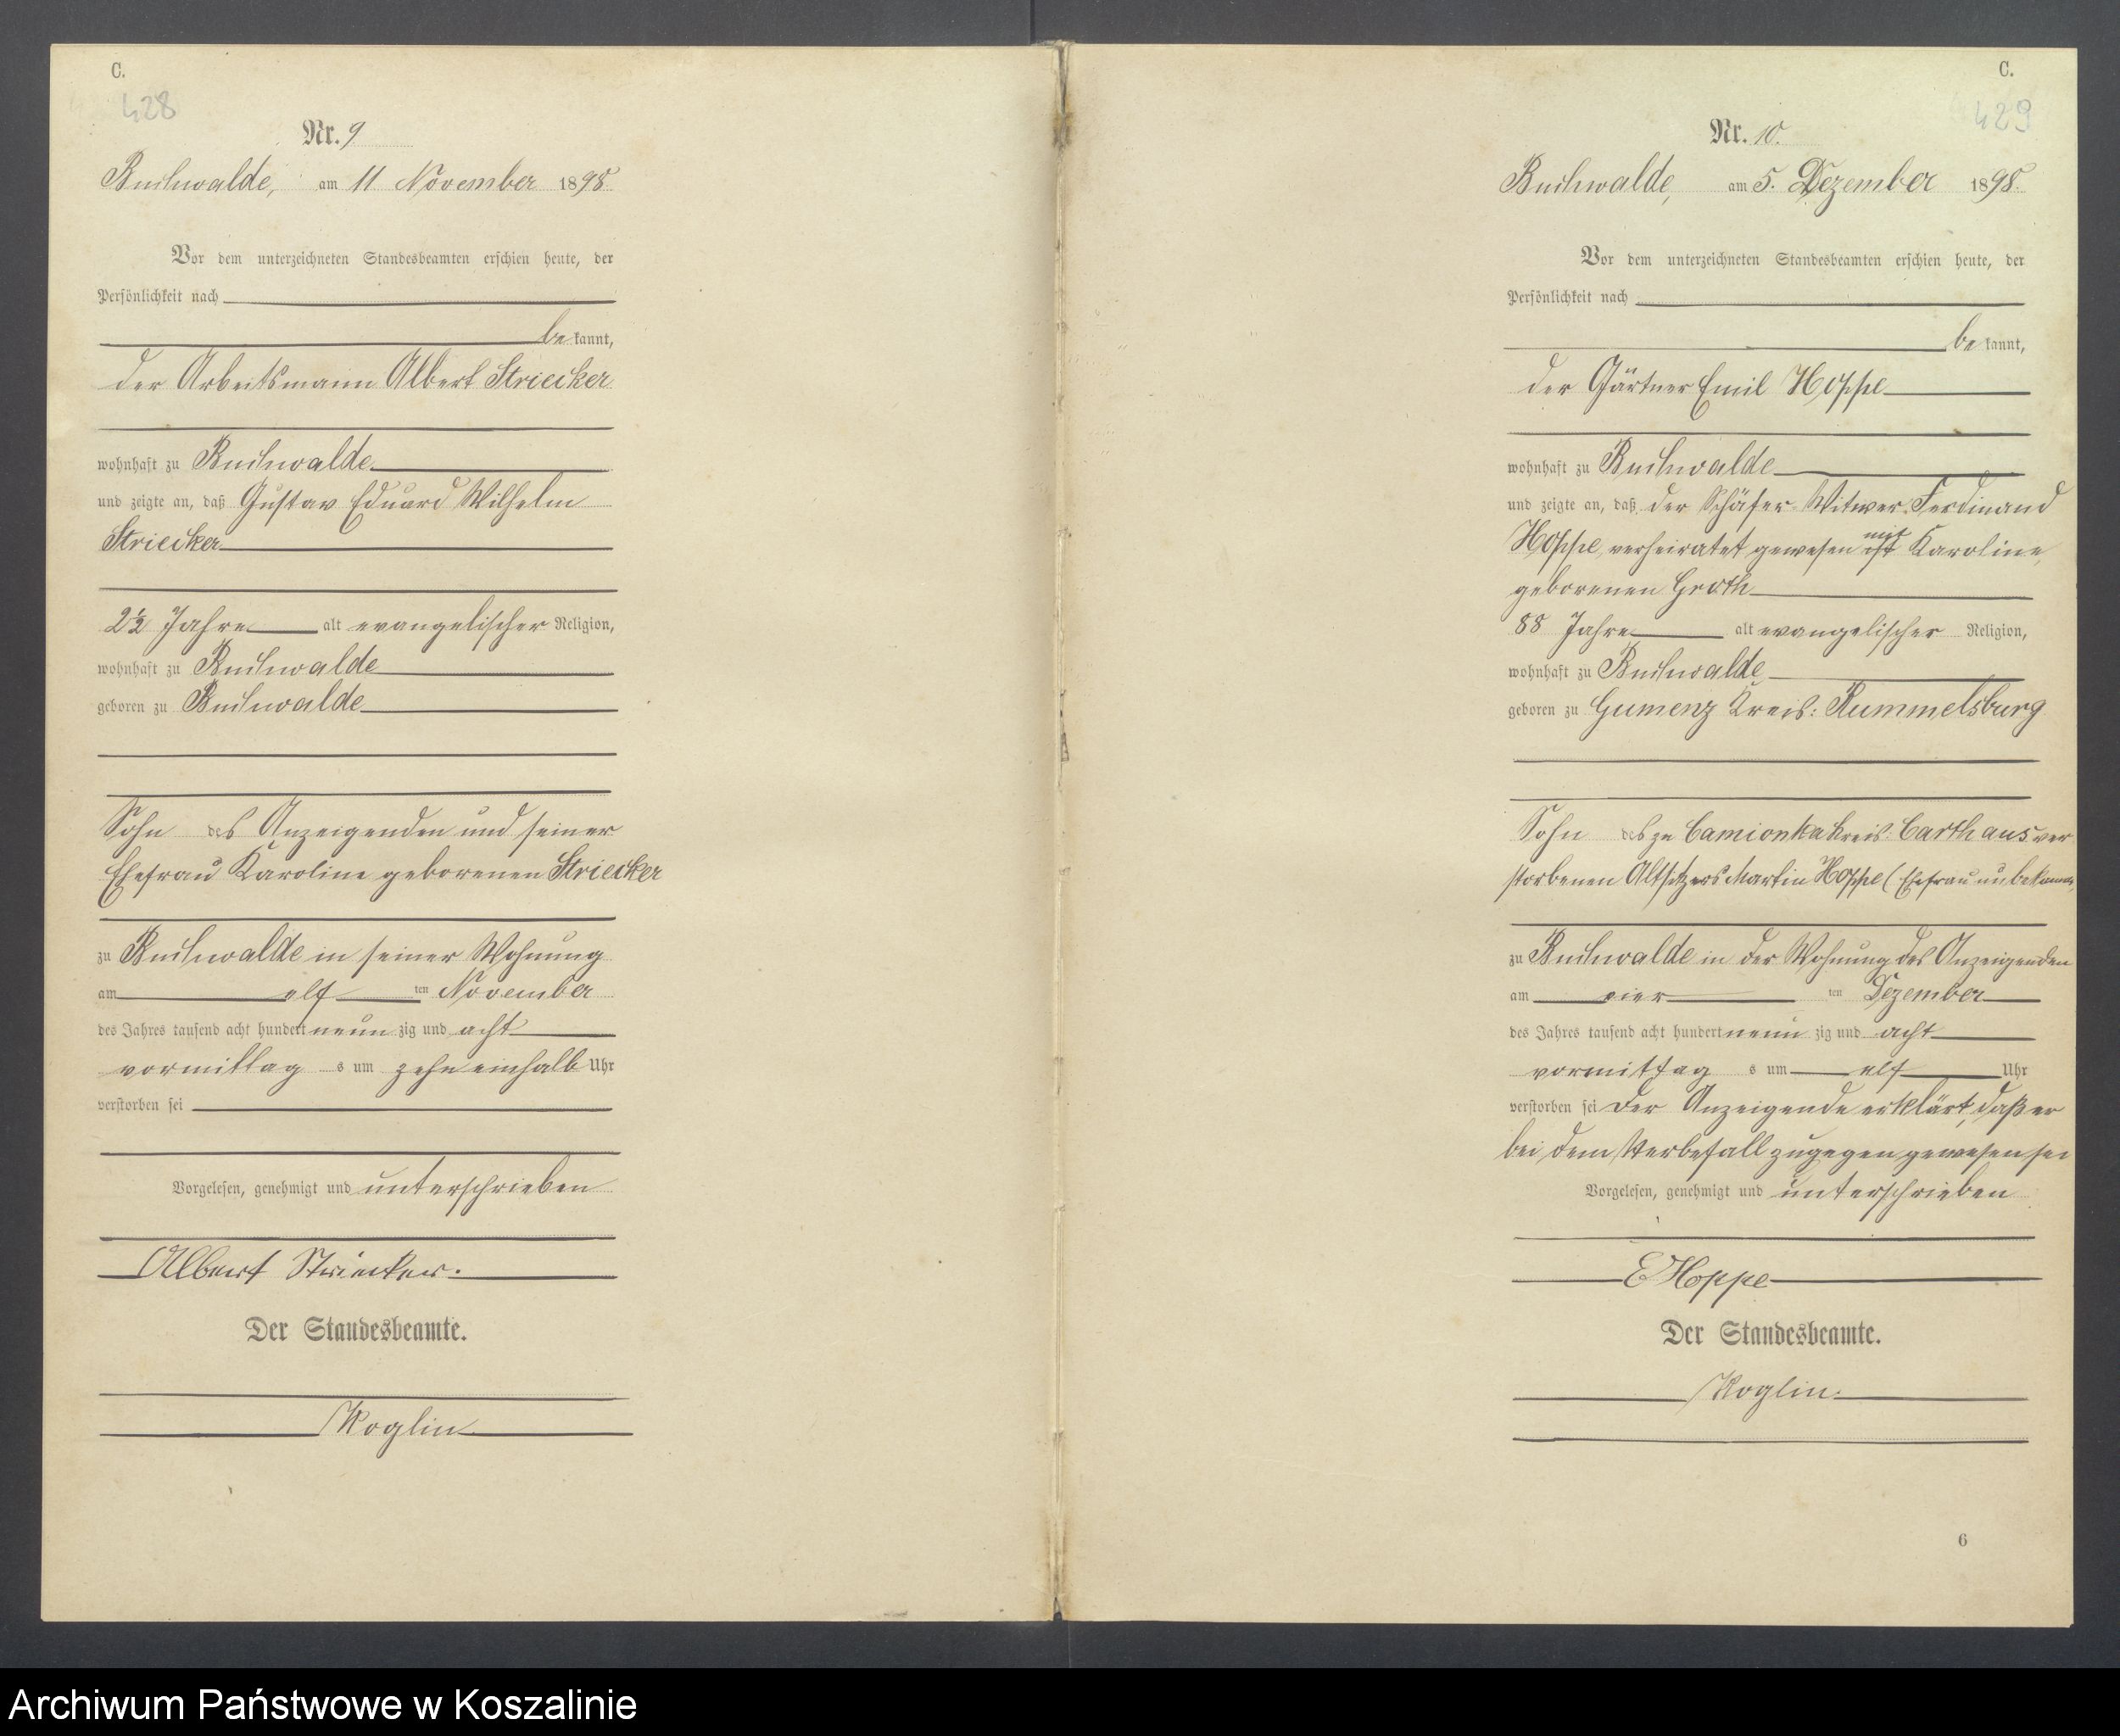 C.
428
Nr. 9
Buchwalde, am 11 November 1898.
Vor dem unterzeichneten Standesbeamten erschien heute, der
Persönlichkeit nach
bekannt,
der Arbeitsmann Albert Striecker
wohnhaft zu Buchwalde
und zeigte an, daß Gustav Eduard Wilhelm
Striecker
2½ Jahre alt evangelischer Religion,
wohnhaft zu Buchwalde
geboren zu Buchwalde
Sohn des Anzeigenden und seiner
Ehefrau Karoline geborenen Striecker
zu Buchwalde in seiner Wohnung
am elf ten November
des Jahres tausend acht hundert neun zig und acht
vormittag s um zehn einhalb Uhr
verstorben sei
Vorgelesen, genehmigt und unterschrieben
Albert Striecker.
Der Standesbeamte.
Koglin
C.
429
Nr. 10.
Buchwalde, am 5. Dezember 1898.
Vor dem unterzeichneten Standesbeamten erschien heute, der
Persönlichkeit nach
bekannt,
der Gärtner Emil Hoppe
wohnhaft zu Buchwalde
und zeigte an, daß der Schäfer Witwer Ferdinand
Hoppe, verheiratet gewesen mit Karoline,
geborenen Groth
88 Jahre alt evangelischer Religion,
wohnhaft zu Buchwalde
geboren zu Gumenz Kreis: Rummelsburg
Sohn des zu Camionka Kreis: Carthaus ver
storbenen Altsitzers Martin Hoppe (Ehefrau unbekannt,
zu Buchwalde in der Wohnung des Anzeigenden
am vier ten Dezember
des Jahres tausend acht hundert neun zig und acht
vormittag s um elf Uhr
verstorben sei Der Anzeigende erklärt, daß er
bei dem Sterbefall zugegen gewesen sei
Vorgelesen, genehmigt und unterschrieben
E Hoppe
Der Standesbeamte.
Koglin.
6
Archiwum Państwowe w Koszalinie